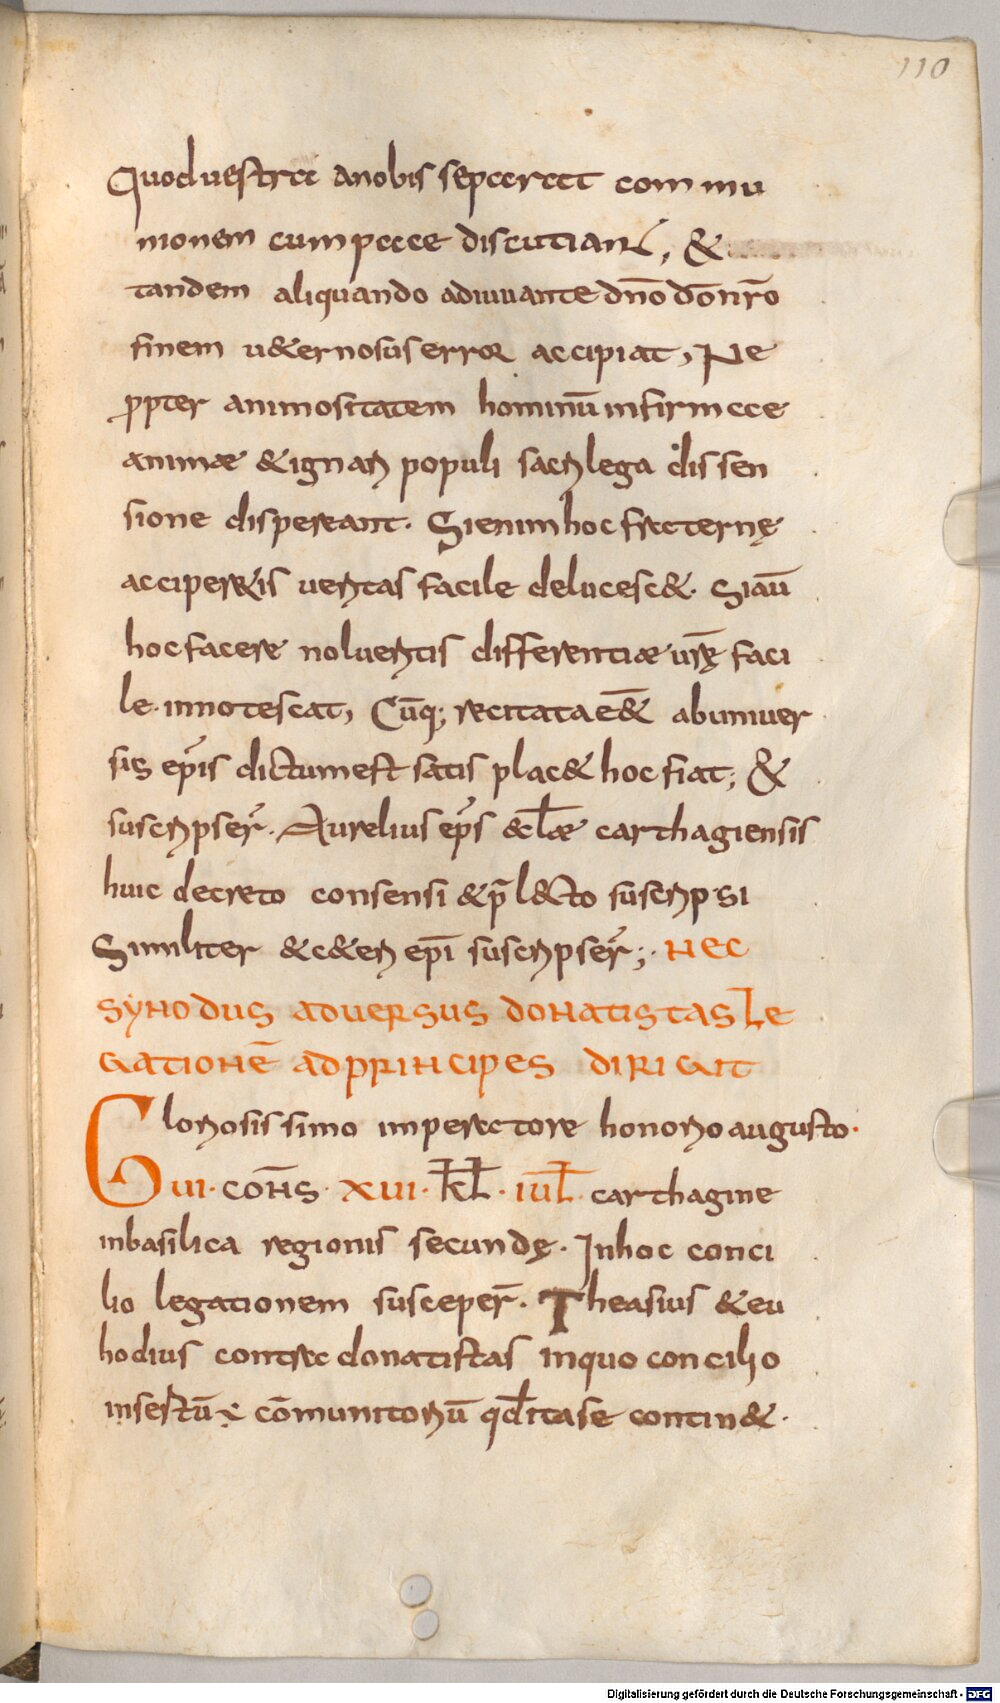 110
Quod vestra a nobis separat commu
nionem cum pace discutiant, &
tandem aliquando adiuuante dn̄o dō nr̄o
finem u&ernosus error accipiat, Ne
ꝓpter animositatem hominū infirmae
animae & ignari populi sacrilega dissen
sione dispereant. Si enim hoc fraternę
acciperetis ueritas facile delucesc&. Si aū
hoc facere nolueritis differentiae ur̄ę faci
le innotescat, Cūq; recitata ēē& ab uniuer
sis ep̄is dictum est satis plac& hoc fiat; &
suscripser̄. Aurelius ep̄s &cl̄ae carthagiensis
huic decreto consensi & p̄l&cto suscripsi
Similiter & c&eri ep̄i suscripser̄;. Hec
synodus aduersus donatistas le
gationē ad principes dirigit
Gloriosissimo imperatore honorio augusto.
VII. coñs. XVI. kł. iuł. carthagine
in basilica regionis secundę. In hoc conci
lio legationem susceper̄. Theasius & eu
hodius contra donatistas in quo concilio
insertū & cōmunitoriū qđ ita se contin&.
Digitalisierung gefördert durch die Deutsche Forschungsgemeinschaft - DFG